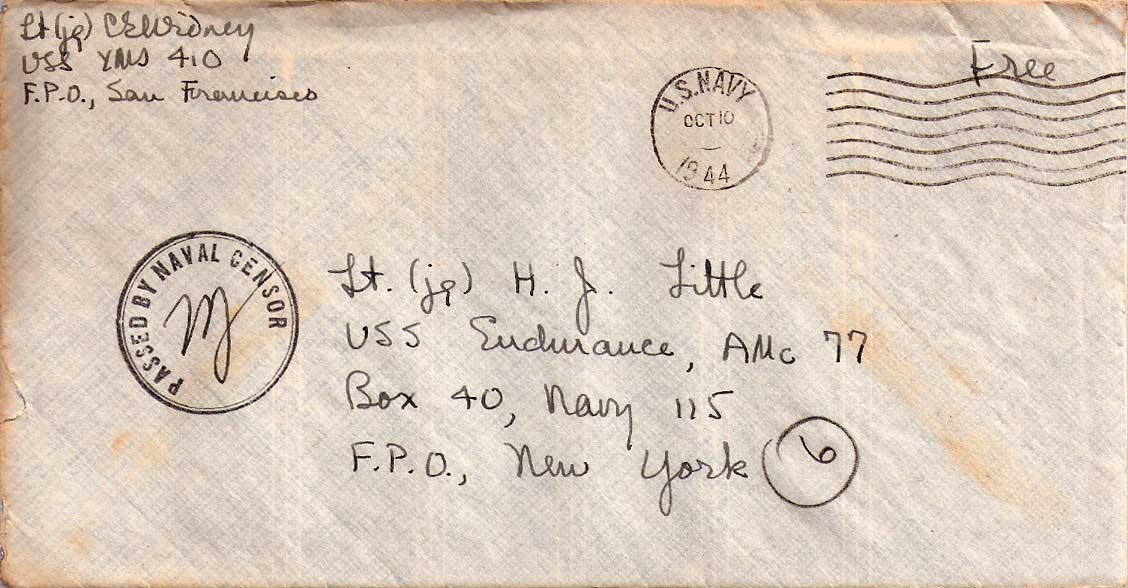 Lt (jg) C E Widney
USS YMS 410
F.P.O., San Francisco
Free
U.S. NAVY
OCT 10
1944
PASSED BY NAVAL CENSOR
Lt. (jg) H. J. Little
USS Endurance, AMc 77
Box 40, Navy 115
F.P.O., New York
6